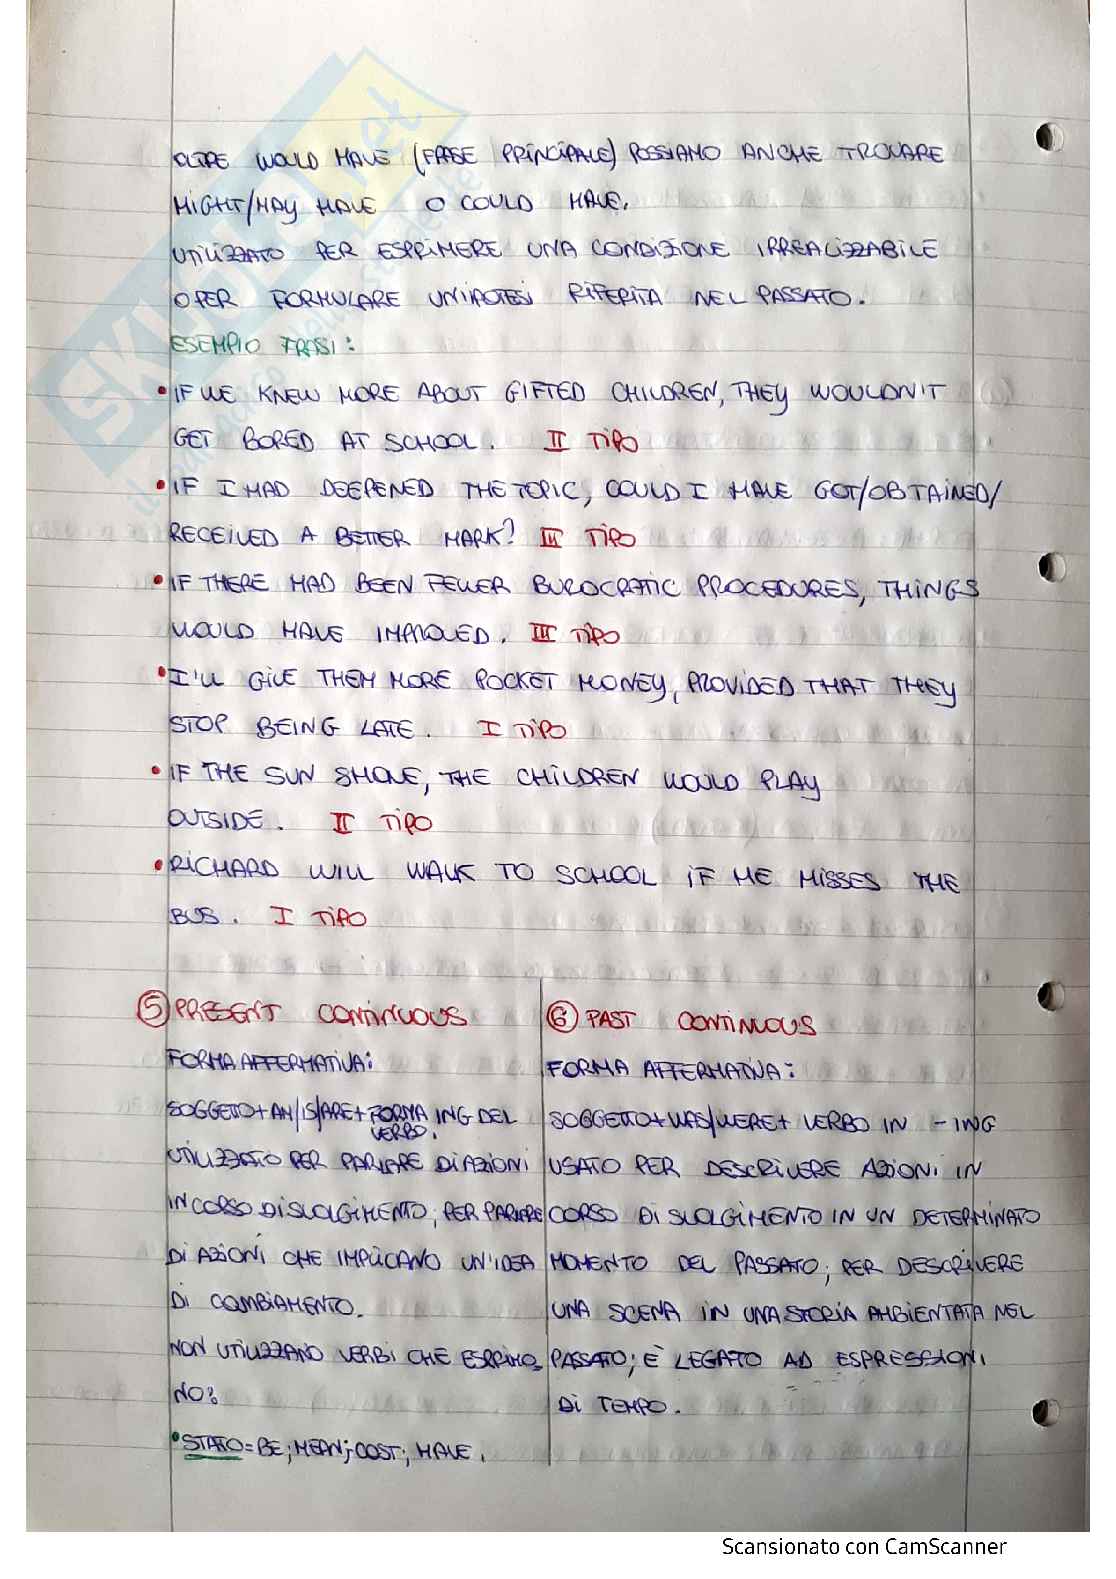 OLTRE WOULD HAVE (FRASE PRINCIPALE) POSSIAMO ANCHE TROVARE
MIGHT/MAY HAVE O COULD HAVE.
UTILIZZATO PER ESPRIMERE UNA CONDIZIONE IRREALIZZABILE
O PER FORMULARE UN'IPOTESI RIFERITA NEL PASSATO.
ESEMPIO FRASI:
• IF WE KNEW MORE ABOUT GIFTED CHILDREN, THEY WOULDN'T
GET BORED AT SCHOOL. II TIPO
• IF I HAD DEEPENED THE TOPIC, COULD I HAVE GOT/OBTAINED/
RECEIVED A BETTER MARK? III TIPO
• IF THERE HAD BEEN FEWER BUROCRATIC PROCEDURES, THINGS
WOULD HAVE IMPROVED. III TIPO
• I'LL GIVE THEM MORE POCKET MONEY, PROVIDED THAT THEY
STOP BEING LATE. I TIPO
• IF THE SUN SHONE, THE CHILDREN WOULD PLAY
OUTSIDE. II TIPO
• RICHARD WILL WALK TO SCHOOL IF HE MISSES THE
BUS. I TIPO
5 PRESENT CONTINUOUS
FORMA AFFERMATIVA:
SOGGETTO+AM/IS/ARE+FORMA ING DEL
VERBO.
UTILIZZATO PER PARLARE DI AZIONI
IN CORSO DI SVOLGIMENTO; PER PARLARE
DI AZIONI CHE IMPLICANO UN'IDEA
DI CAMBIAMENTO.
NON UTILIZZANO VERBI CHE ESPRIMO_
NO:
• STATO=BE; MEAN; COST; HAVE.
6 PAST CONTINUOUS
FORMA AFFERMATIVA:
SOGGETTO+WAS/WERE+ VERBO IN -ING
USATO PER DESCRIVERE AZIONI IN
CORSO DI SVOLGIMENTO IN UN DETERMINATO
MOMENTO DEL PASSATO; PER DESCRIVERE
UNA SCENA IN UNA STORIA AMBIENTATA NEL
PASSATO; È LEGATO AD ESPRESSIONI
DI TEMPO.
Scansionato con CamScanner